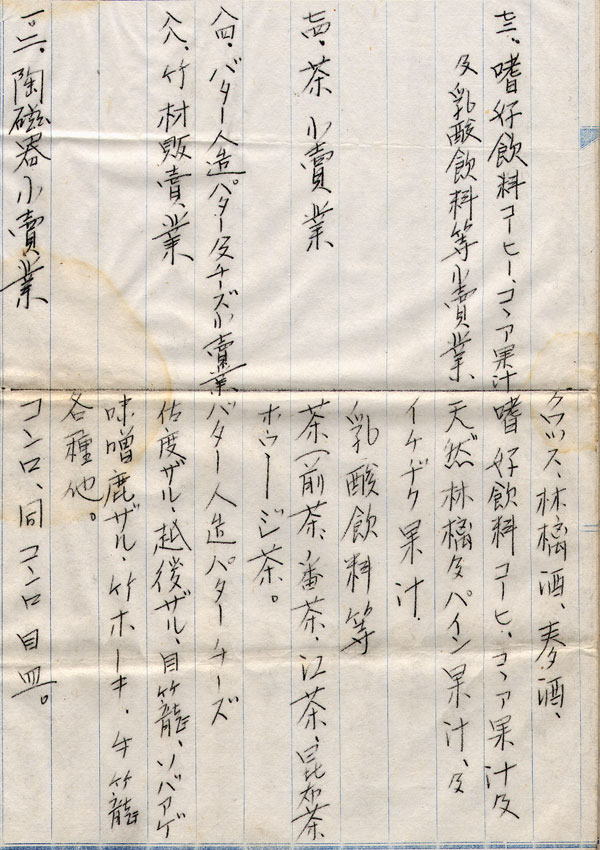 クワス、林檎酒、麦酒、
七三、嗜好飲料コーヒー、ココア果汁
及乳酸飲料等小賣業、
嗜好飲料コーヒ、ココア果汁及
天然林檎及パイン果汁、及
イチヂク果汁、
乳酸飲料等
七四、茶小賣業
茶(前茶、番茶、江茶、昆布茶
ホウージ茶。
八四、バター人造バター及チーズ小賣業
バター人造バターチーズ
八八、竹材販賣業
佐度ザル、越後ザル、目竹籠、ソバアゲ
味噌鹿ザル、竹ホーキ、牛竹籠
各種他。
一〇二、陶磁器小賣業
コンロ、同コンロ目皿。